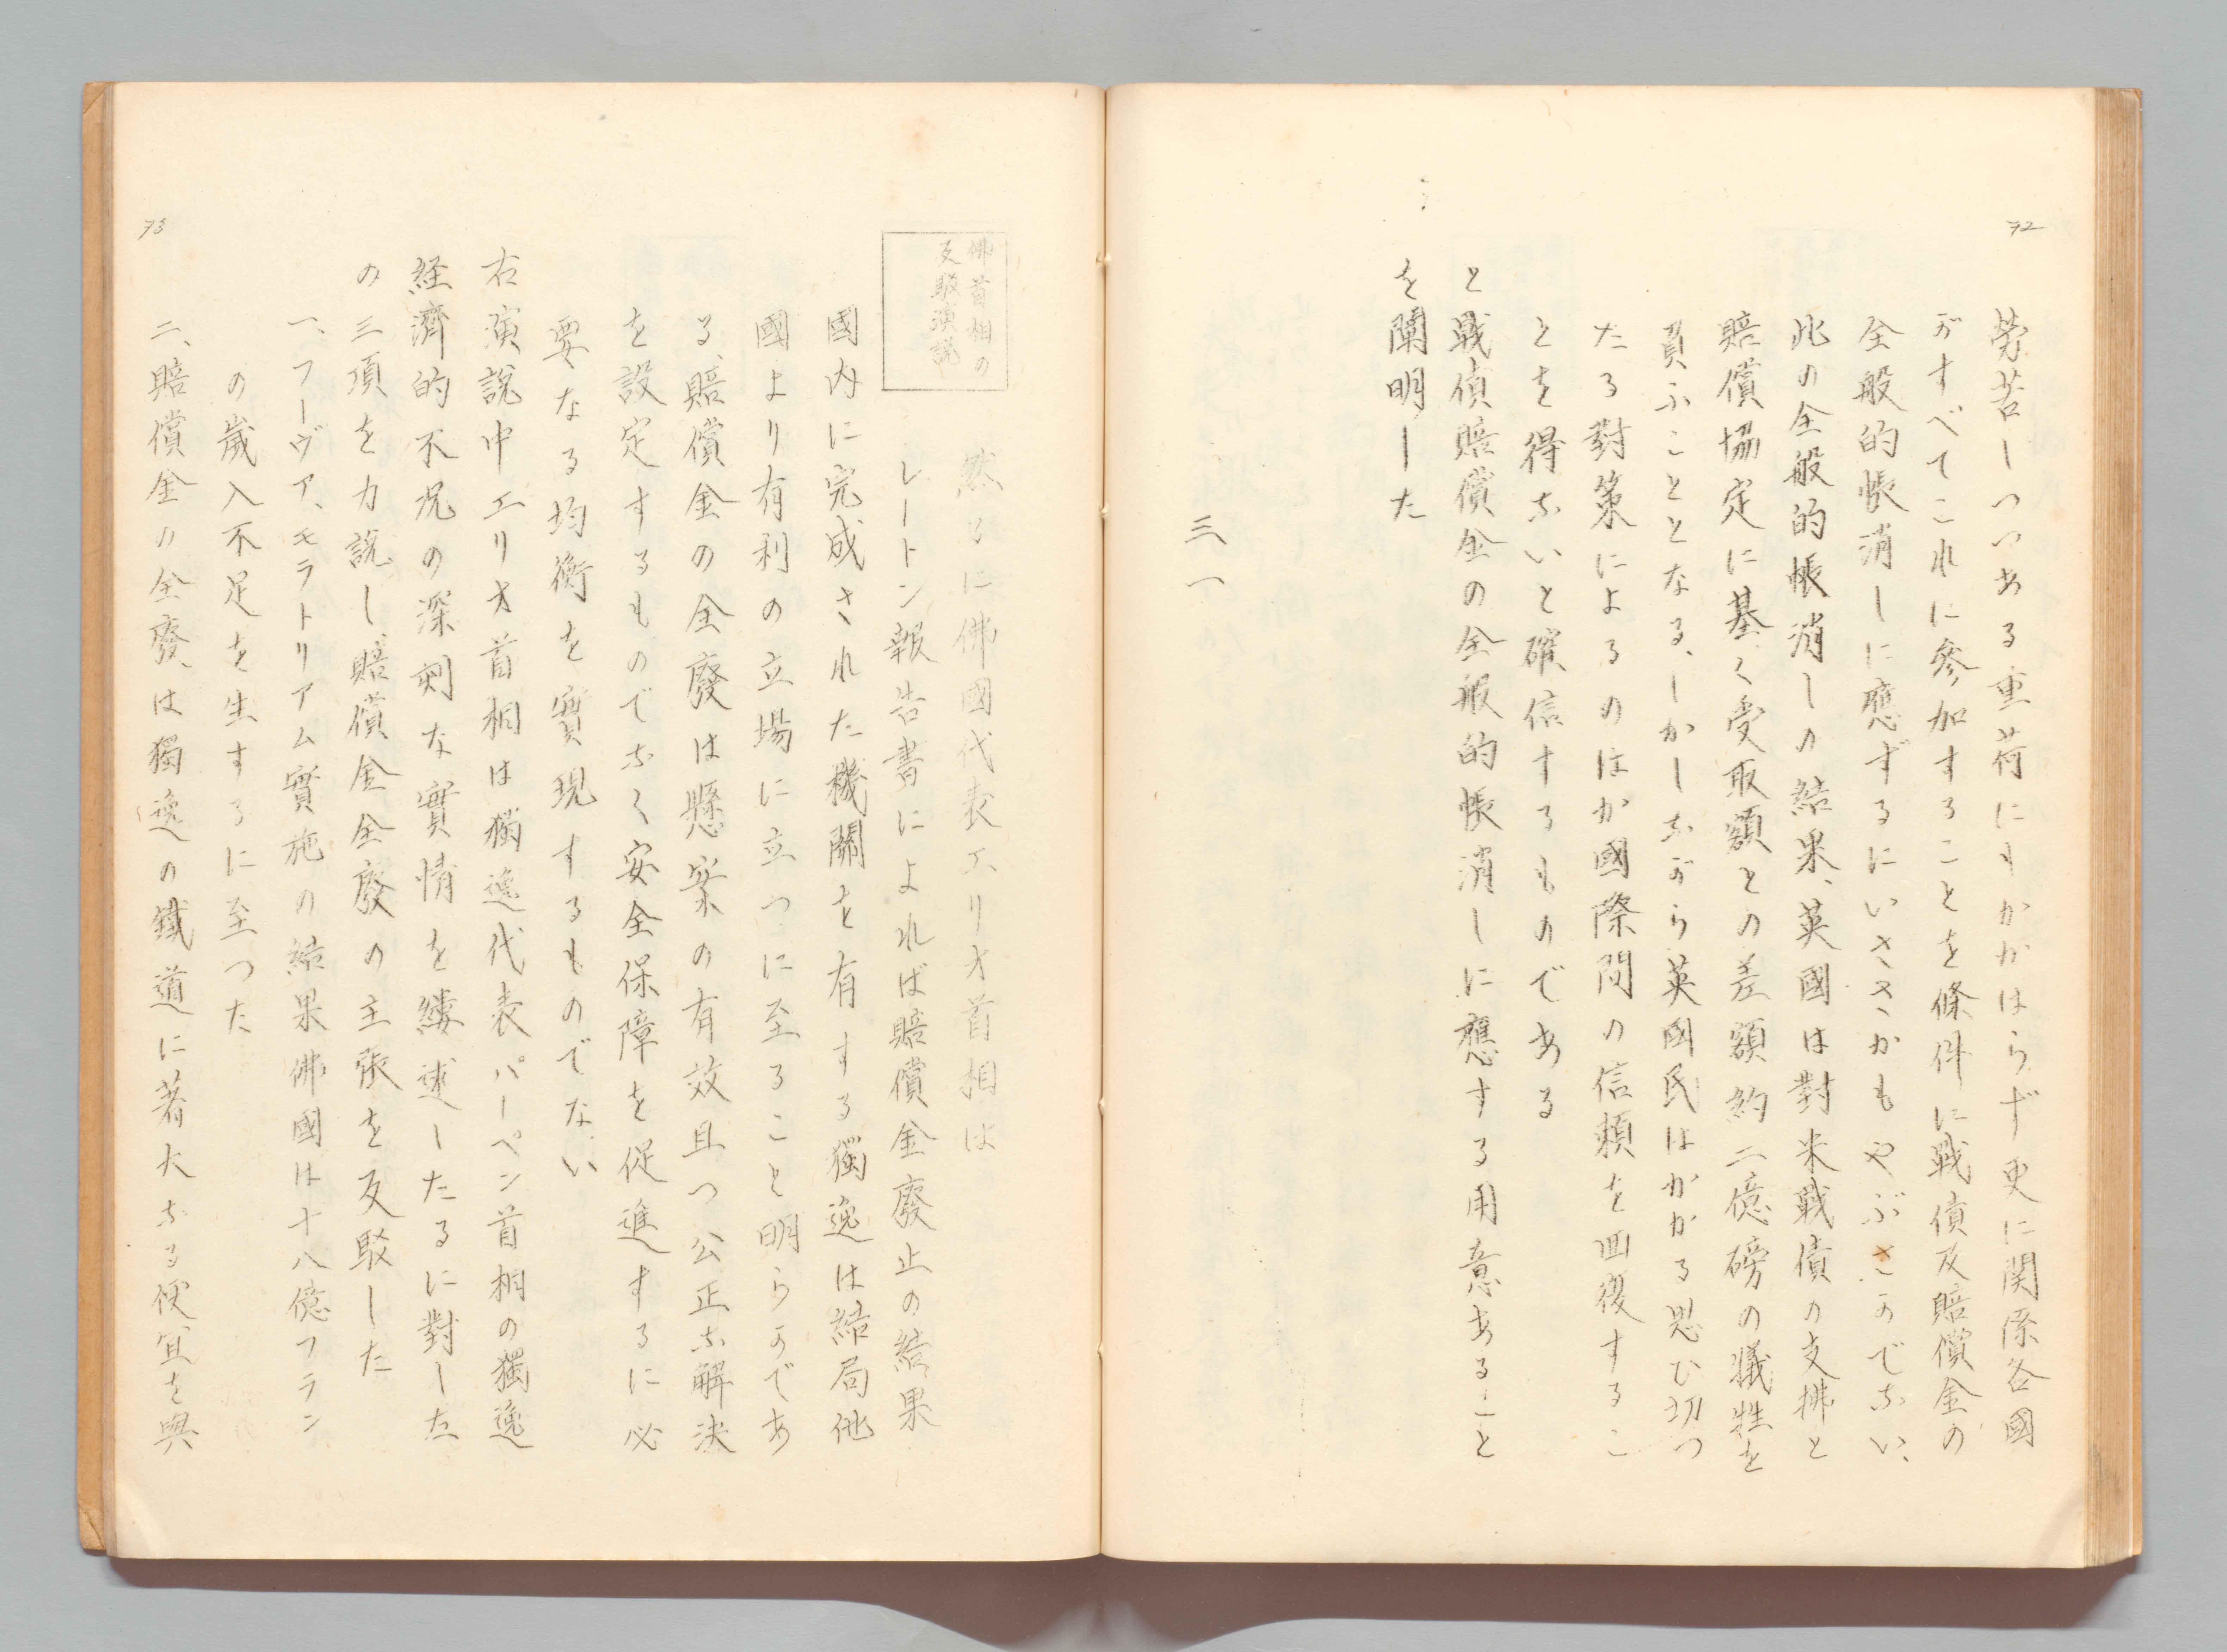 72
労苦しつつある重荷にもかかはらず更に関係各國
がすべてこれに参加することを條件に戰債及賠償金の
全般的帳消しに應ずるにいささかもやぶさかでない、
此の全般的帳消しの結果、英國は對米戰債の支拂と
賠償協定に基く受取額との差額約二億磅の犠牲を
負ふこととなる、しかしながら英國民はかかる思ひ切つ
たる對策によるのほか國際間の信頼を回復するこ
とを得ないと確信するものである
と戰債賠償金の全般的帳消しに應する用意あること
を闡明した
三一
佛首相の
反駁演説
然るに佛國代表エリオ首相は
レートン報告書によれば賠償金廢止の結果
國内に完成された機關を有する獨逸は結局他
國より有利の立場に立つに至ること明らかであ
る、賠償金の全廢は懸案の有效且つ公正な解決
を設定するものでなく安全保障を促進するに必
要なる均衡を實現するものでない
右演説中エリオ首相は獨逸代表パーペン首相の獨逸
経濟的不況の深刻な實情を縷述したるに對した
の三項を力説し賠償金全廢の主張を反駁した
一、フーヴア、モラトリアム實施の結果佛國は十八億フラン
の歳入不足を生するに至つた
二、賠償金の全廢は獨逸の鐵道に著大なる便宜を與
73